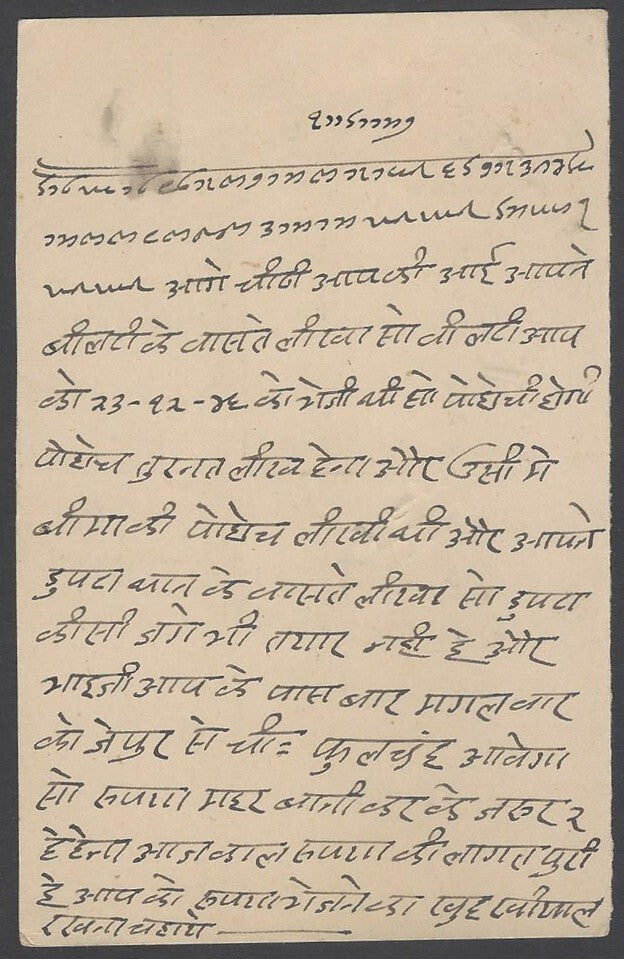 आगे चीठी आपकी आई आपने
बीलटी के वासते लीखा सो बीलटी आप
को २३-१२-४६ को भेजी थी सो पोहोची होगी
पोहोच तुरनत लीख देना और उसी मे
बीमा की पोहोच लीखी थी और आपने
डुपटा थान के वासते लीखा सो डुपटा
कीसी जगे भी तयार नही हे और
भाइजी आप के पास बार मगलवार
को जेपुर से ची= फुलचंद आवेगा
सो रुपया महर बानी कर के जरुर २
देदेना आज काल रुपया की लागत पुरी
हे आप को रुपया भेजने का खुद खीयाल
रखना चहाये